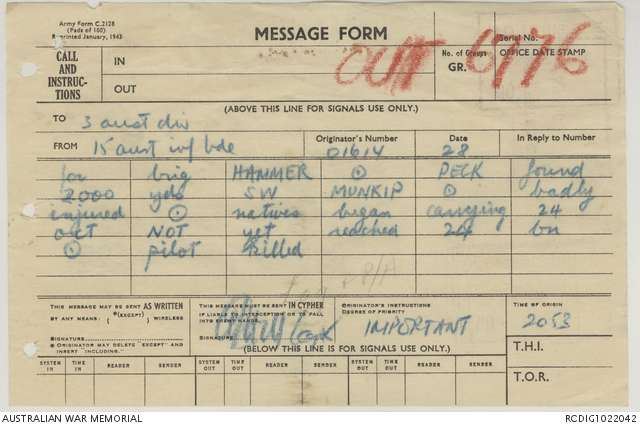 Army Form C.2128
(Pads of 100)
Reprinted January, 1943
MESSAGE FORM
Serial No.
CALL AND INSTRUC-TIONS
IN
OUT
OUT
No. of Groups
GR.
OFFICE DATE STAMP
0776
(ABOVE THIS LINE FOR SIGNALS USE ONLY.)
TO 3 aust div
FROM 15 aust inf bde
Originator's Number 01614
Date 28
In Reply to Number
for brig HAMMER ⊙ PECK found
2000 yds SW MUNKIP ⊙ badly
injured ⊙ natives began carrying 24
oct NOT yet reached 24 bn
⊙ pilot killed
THIS MESSAGE MAY BE SENT AS WRITTEN
BY ANY MEANS (EXCEPT) WIRELESS
SIGNATURE
ORIGINATOR MAY DELETE "EXCEPT" AND
INSERT INCLUDING."
THIS MESSAGE MUST BE SENT IN CYPHER
IF LIABLE TO INTERCEPTION OR TO FALL
INTO ENEMY HANDS.
SIGNATURE
Capt
ORIGINATOR'S INSTRUCTIONS
DEGREE OF PRIORITY
IMPORTANT
(BELOW THIS LINE IS FOR SIGNALS USE ONLY.)
TIME OF ORIGIN
2053
T.H.I.
T.O.R.
SYSTEM IN
TIME IN
READER
SENDER
SYSTEM OUT
TIME OUT
READER
SENDER
SYSTEM OUT
TIME OUT
READER
SENDER
AUSTRALIAN WAR MEMORIAL
RCDIG1022042